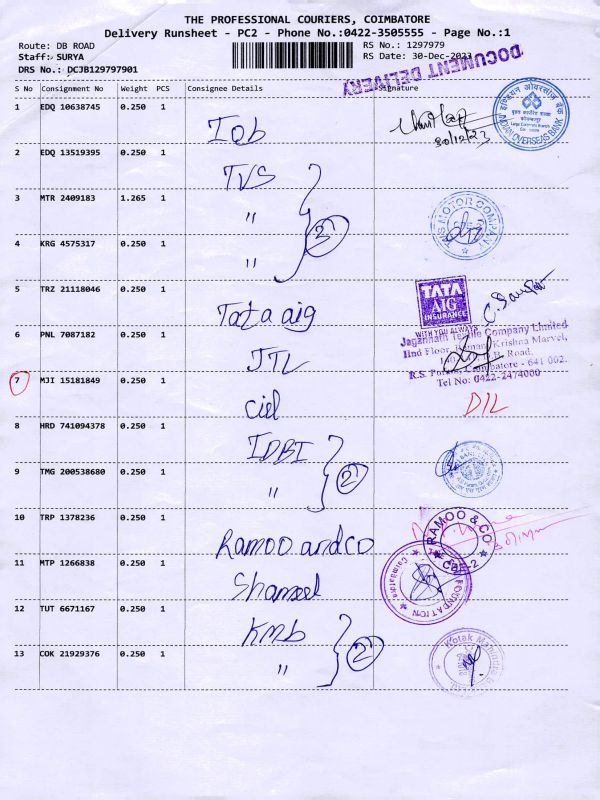 THE PROFESSIONAL COURIERS, COIMBATORE
Delivery Runsheet - PC2 - Phone No.:0422-3505555 - Page No.:1
Route: DB ROAD RS No.: 1297979
Staff: SURYA RS Date: 30-Dec-2023
DRS No.: DCJB129797901
DOCUMENT DELIVERY
S No Consignment No Weight PCS Consignee Details Signature
1 EDQ 10638745 0.250 1 Iob
30/12/23
INDIAN OVERSEAS BANK
2 EDQ 13519395 0.250 1 TVS
3 MTR 2409183 1.265 1 " 3
MOTOR COMPANY
4 KRG 4575317 0.250 1 "
5 TRZ 21118046 0.250 1 Tata aig
TATA
AIG
INSURANCE
WITH YOU ALWAYS
6 PNL 7087182 0.250 1 JTL
Jagannath Textile Company Limited
IInd Floor, Krishna Marvel,
D.B. Road.
R.S. Puram, Coimbatore - 641 002.
Tel No: 0422-2474000
7 MJI 15181849 0.250 1 ciel DIL
8 HRD 741094378 0.250 1 IDBI
9 TMG 200538680 0.250 1 " 2
10 TRP 1378236 0.250 1 Ramoo and co
RAMOO & CO
CBE-2
11 MTP 1266838 0.250 1 Shameel
FOUNDATION
Coimbatore
12 TUT 6671167 0.250 1 KMb
13 COK 21929376 0.250 1 " 2
Kotak Mahindra